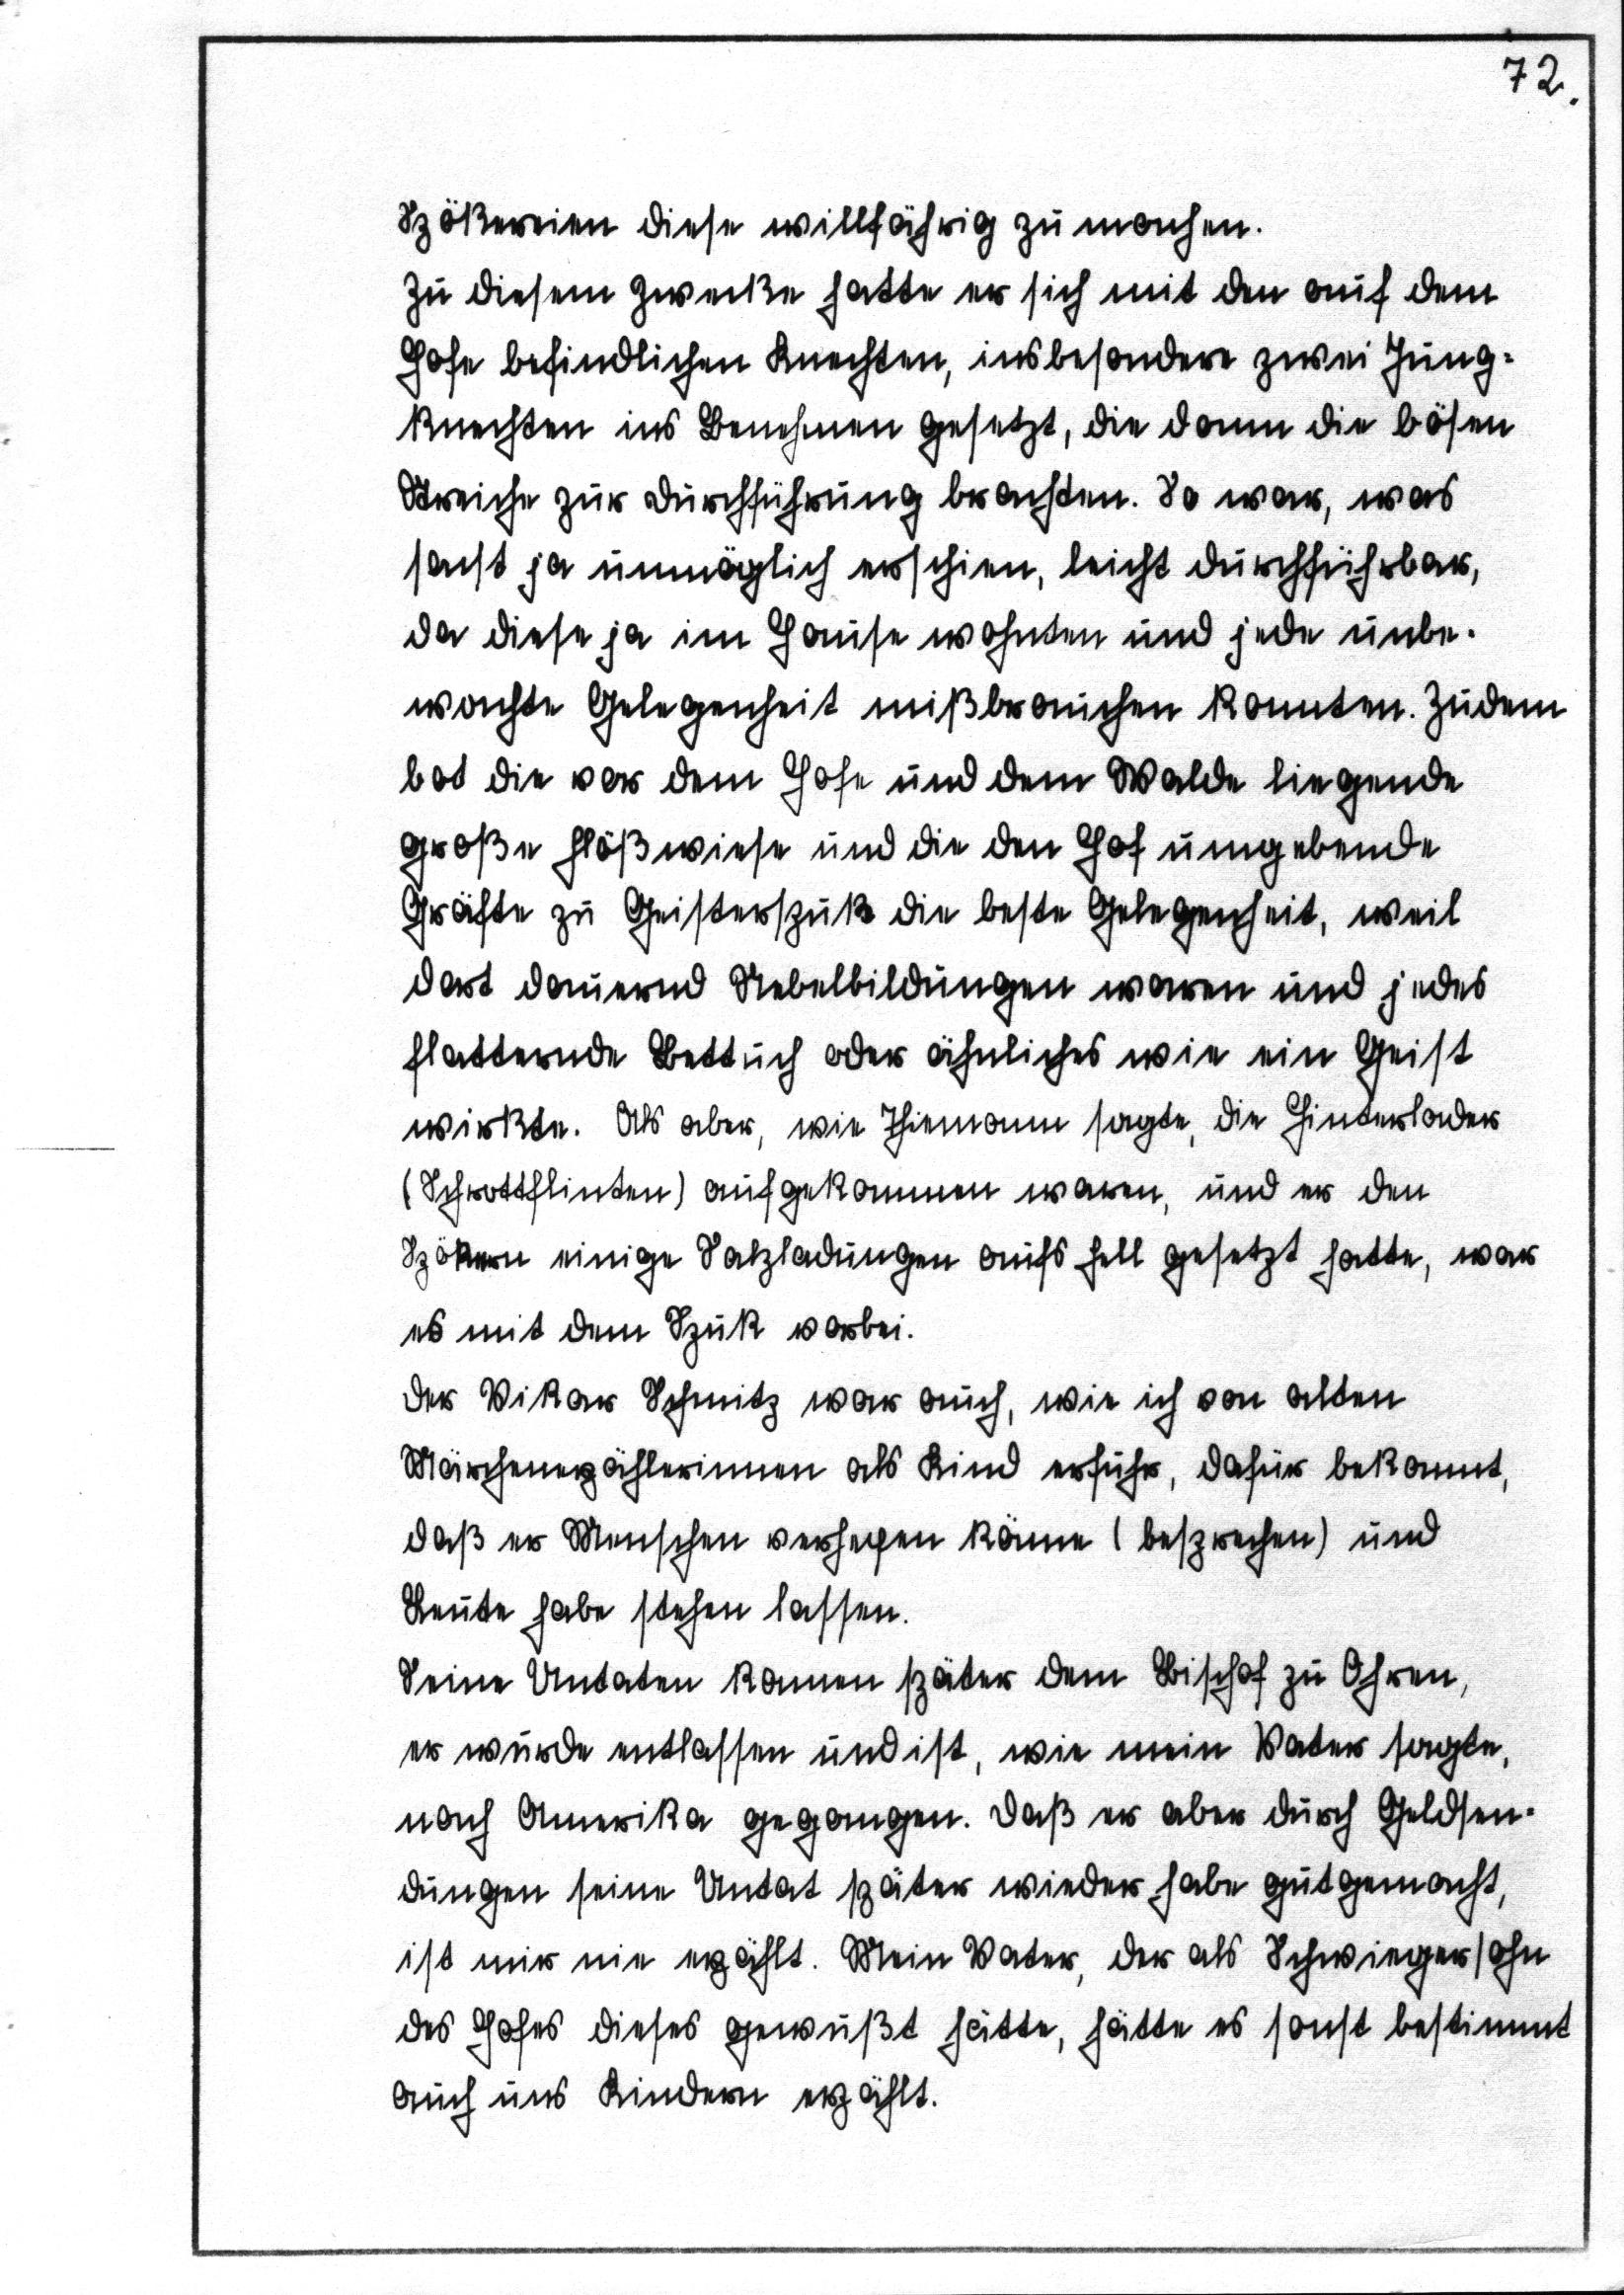 72.
Spökereien diese willfährig zu machen.
Zu diesem Zwecke hatte er sich mit den auf dem
Hofe befindlichen Knechten, insbesondere zwei Jung-
knechten ins Benehmen gesetzt, die dann die bösen
Streiche zur Durchführung brachten. So war, was
sonst ja unmöglich erschien, leicht durchführbar,
da diese ja im Hause wohnten und jede unbe-
wachte Gelegenheit mißbrauchen konnten. Zudem
bot die vor dem Hofe und dem Walde liegende
große Flößwiese und die den Hof umgebende
Gräfte zu Geisterspuk die beste Gelegenheit, weil
dort dauernd Nebelbildungen waren und jedes
flatternde Bettuch oder ähnliches wie ein Geist
wirkte. Als aber, wie Thiemann sagte, die Hinterlader
(Schrottflinten) aufgekommen waren, und er den
Spökern einige Salzladungen aufs Fell gesetzt hatte, war
es mit dem Spuk vorbei.
Der Vikar Schmitz war auch, wie ich von alten
Märchenerzählerinnen als Kind erfuhr, dafür bekannt,
daß er Menschen verhexen könne (besprechen) und
Leute habe stehen lassen.
Seine Untaten kamen später dem Bischof zu Ohren,
er wurde entlassen und ist, wie mein Vater sagte,
nach Amerika gegangen. Daß er aber durch Geldsen-
dungen seine Untat später wieder habe gutgemacht,
ist mir nie erzählt. Mein Vater, der als Schwiegersohn
des Hofes dieses gewußt hätte, hätte es sonst bestimmt
auch uns Kindern erzählt.